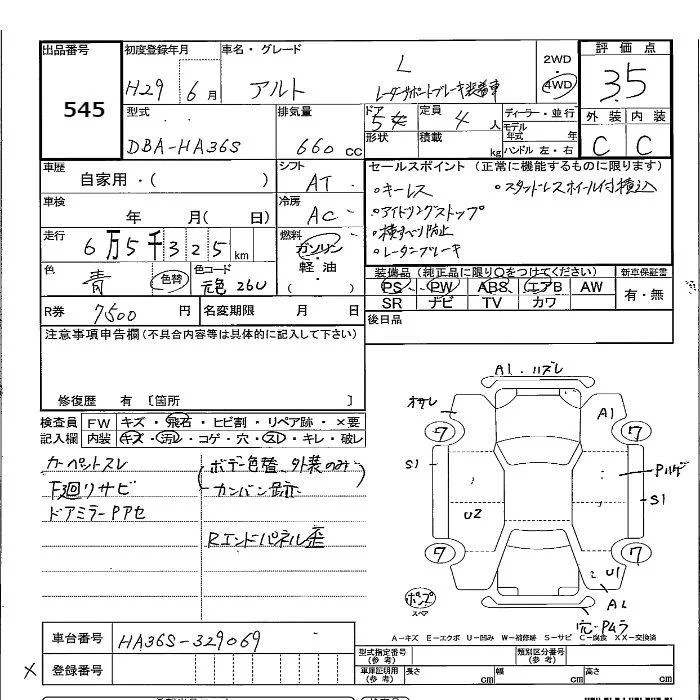 出品番号 初度登録年月 車名・グレード 2WD 評価点
545 H29 6月 アルト L 4WD 3.5
レーダーサポートブレーキ装着車
型式 排気量 ドア 定員 ディーラー・並行 外装 内装
DBA-HA36S 660cc 5 4人 モデル年式 年 C C
形状 積載 kg ハンドル 左・右
車歴 シフト セールスポイント(正常に機能するものに限ります)
自家用・( ) AT
・キーレス ・スタッドレスホイール付積込
車検 冷房 ・アイドリングストップ
年 月( 日) AC ・横すべり防止
走行 燃料 ・レーダーブレーキ
6万5千325km ガソリン
軽・油
( )
色 色コード 装備品(純正品に限り○をつけてください) 新車保証書
青 色替 元色 26U PS PW ABS エアB AW 有・無
SR ナビ TV カワ
R券 7500円 名変期限 月 日 後日品
注意事項申告欄(不具合内容等は具体的に記入して下さい)
修復歴 有 〔箇所 〕
検査員 FW キズ・飛石・ヒビ割・リペア跡・×要
記入欄 内装 キズ・汚レ・コゲ・穴・スレ・キレ・破レ
カーペットスレ (ボデー色替、外装のみ)
下廻リサビ カンバン跡
ドアミラーPアセ
Rエンドパネル歪
A1・ハズレ
A1
7 7
S1 Pハゲ
S1
U2
7 7
U1
ポンプ A2
スペア
穴・Pムラ
A−キズ E−エクボ U−凹み W−補修跡 S−サビ C−腐食 XX−交換済
車台番号 HA36S-329069
型式指定番号(参考) 類別区分番号(参考)
× 登録番号
車庫証明用(参考) 長さ cm 幅 cm 高さ cm